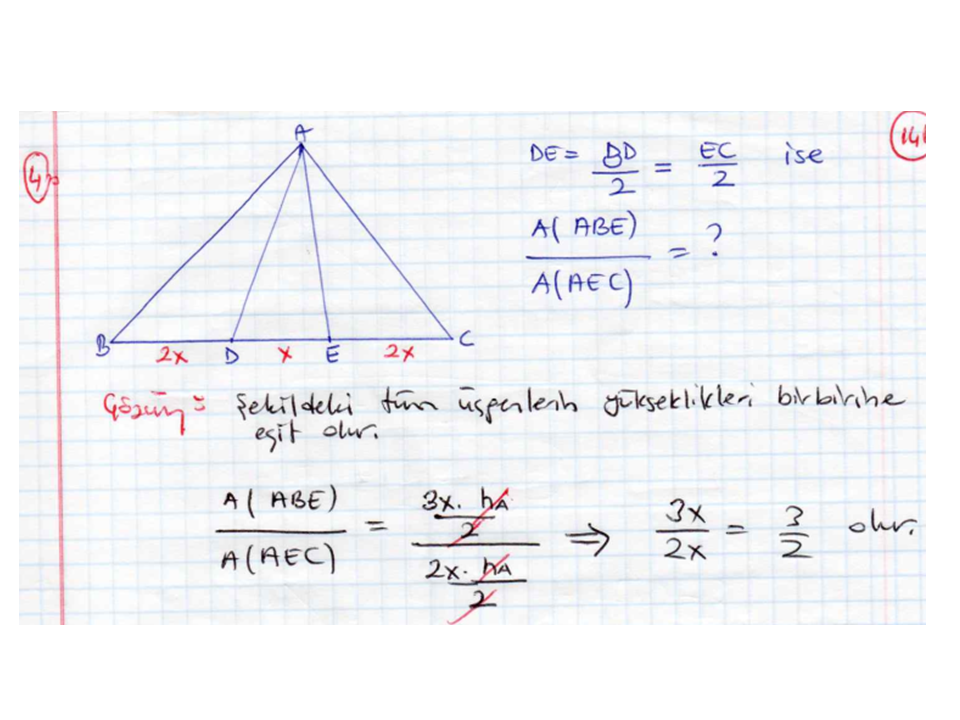 4)
14
DE = BD/2 = EC/2 ise
A(ABE)/A(AEC) = ?
A
B 2x D x E 2x C
Çözüm: Şekildeki tüm üçgenlerin yükseklikleri birbirine
eşit olur.
A(ABE)/A(AEC) = (3x.hA/2)/(2x.hA/2) ⇒ 3x/2x = 3/2 olur.